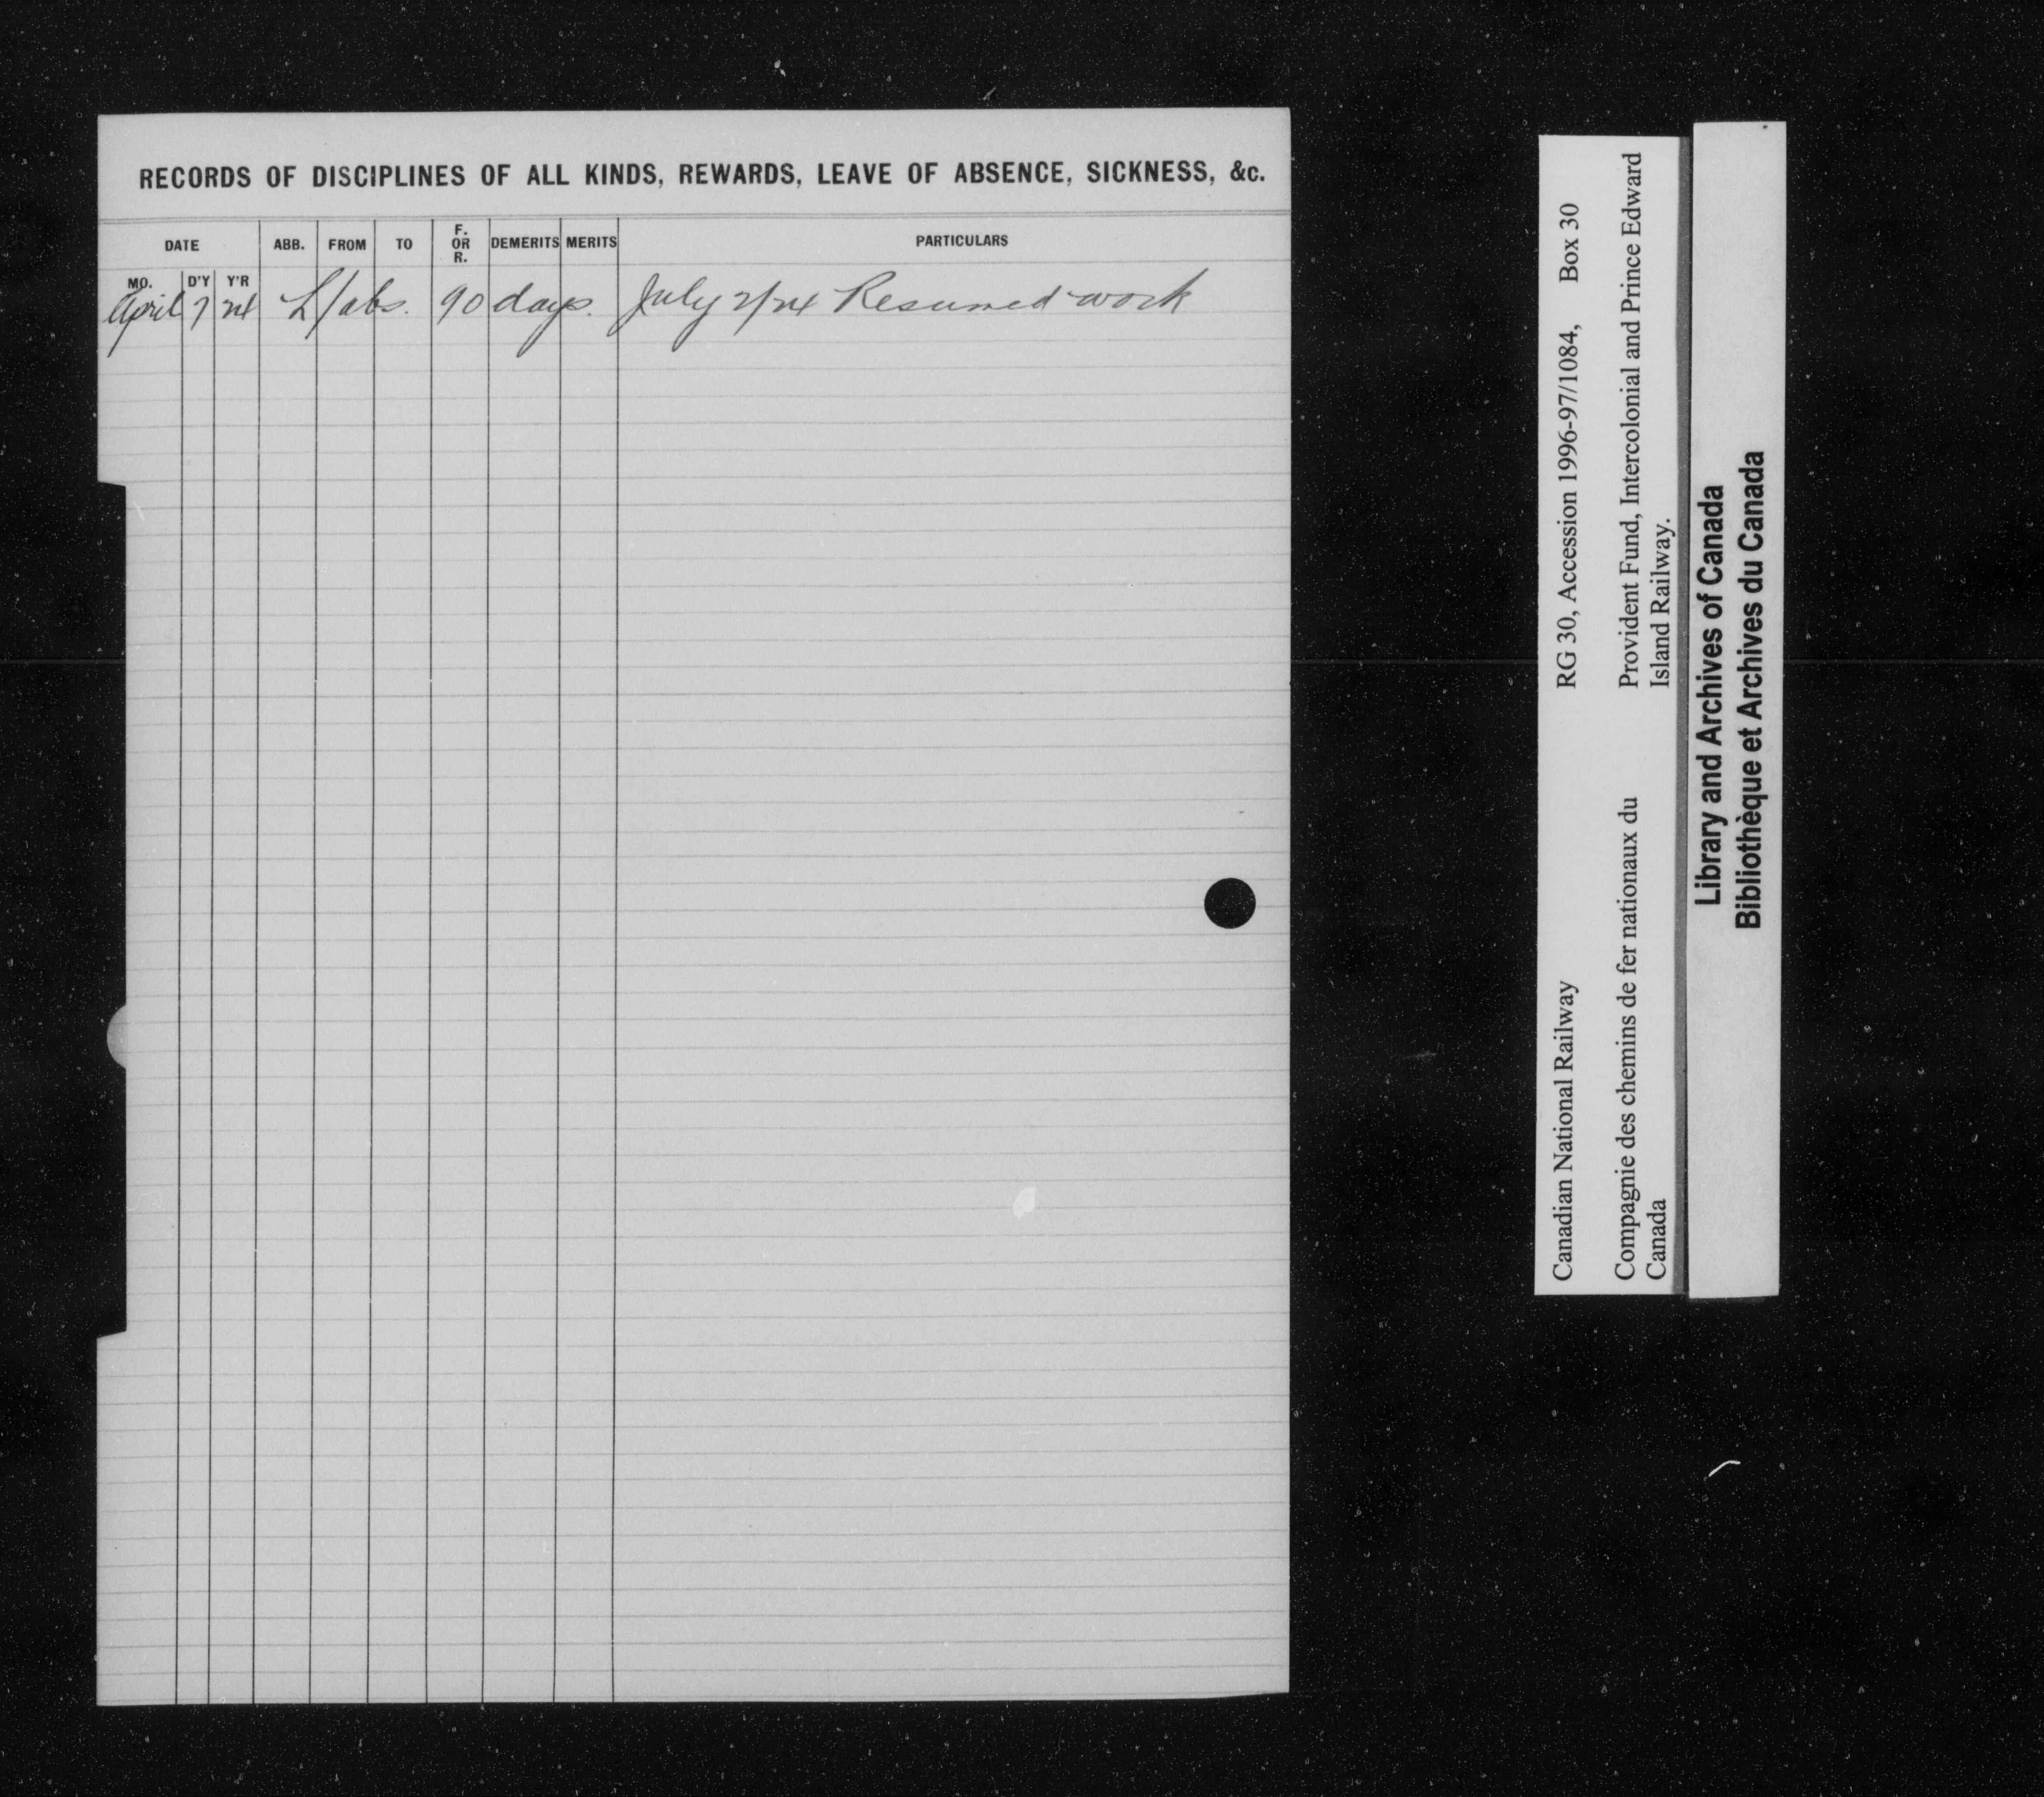 RECORDS OF DISCIPLINES OF ALL KINDS, REWARDS, LEAVE OF ABSENCE, SICKNESS, &c.
DATE ABB. FROM TO F. OR R. DEMERITS MERITS PARTICULARS
MO. D'Y Y'R
April 7 24 L/abs. 90 days. July 2/24 Resumed work
Canadian National Railway RG 30, Accession 1996-97/1084, Box 30
Compagnie des chemins de fer nationaux du Provident Fund, Intercolonial and Prince Edward
Canada Island Railway.
Library and Archives of Canada
Bibliothèque et Archives du Canada